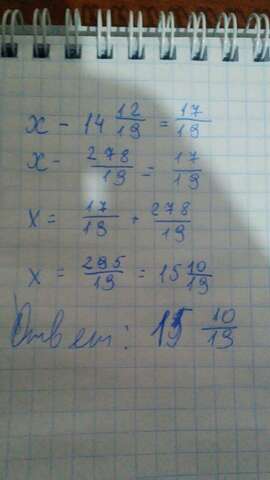 x - 14 12/19 = 17/19
x - 278/19 = 17/19
x = 17/19 + 278/19
x = 295/19 = 15 10/19
Ответ: 15 10/19